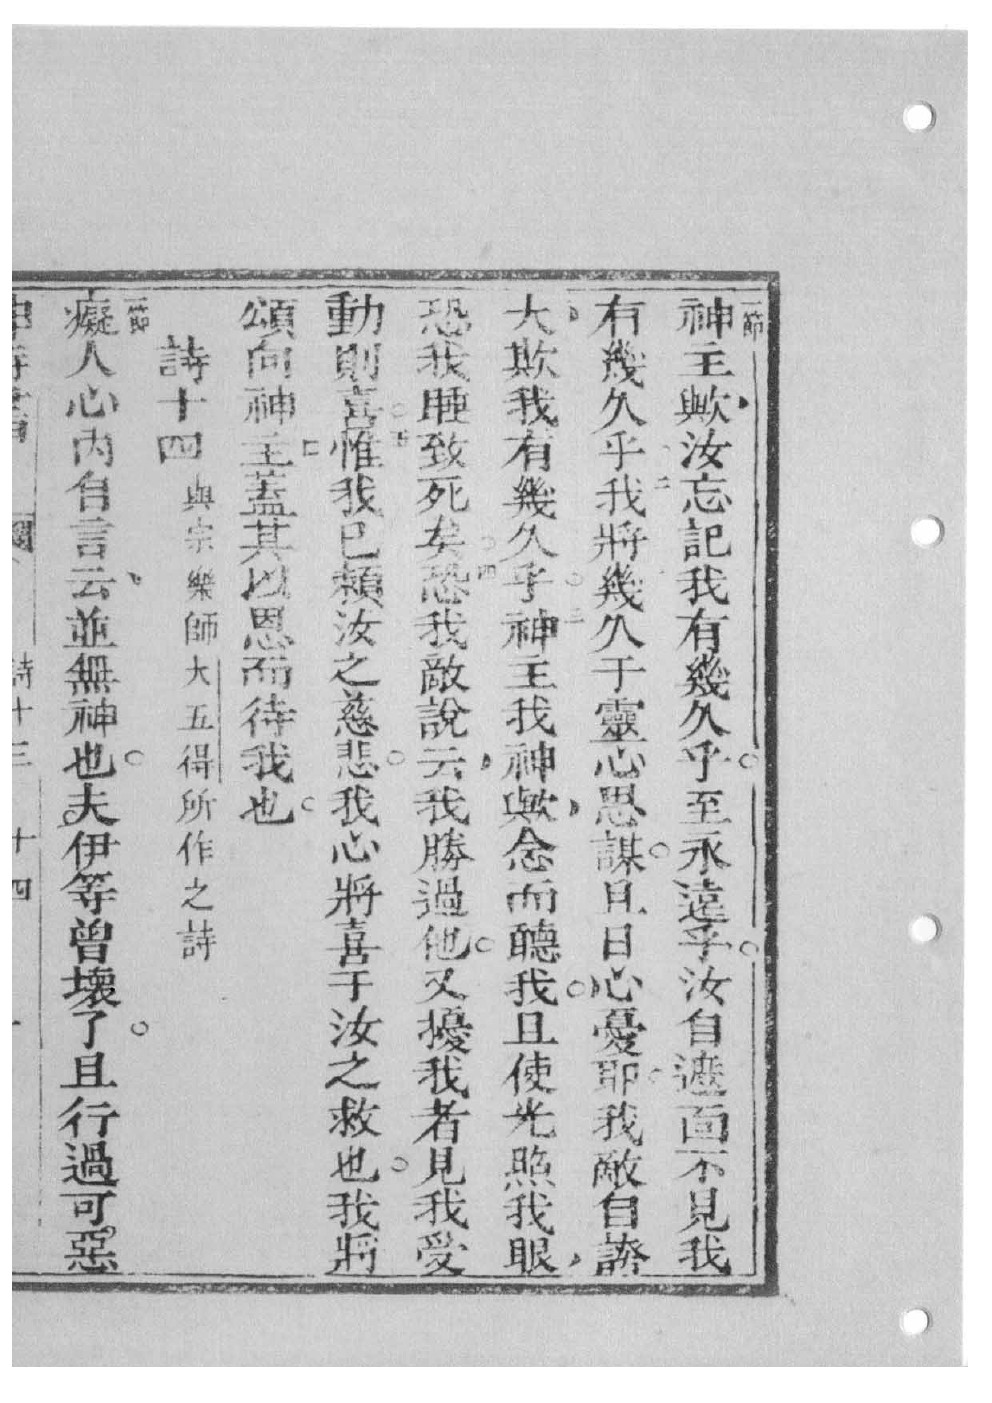 一節
神主歟汝忘記我有幾久乎至永遠乎汝自遮面不見我
有幾久乎二我將幾久于靈心思謀且日心憂耶我敵自誇
大欺我有幾久乎三神主我神歟念而聽我且使光照我眼
恐我睡致死矣四恐我敵說云我勝過他又擾我者見我受
動則喜五惟我已賴汝之慈悲我心將喜于汝之救也我將
頌向神主蓋其以恩而待我也
詩十四 與宗樂師大五得所作之詩
一節
癡人心內自言云並無神也夫伊等曾壞了且行過可惡
詩十三 十四